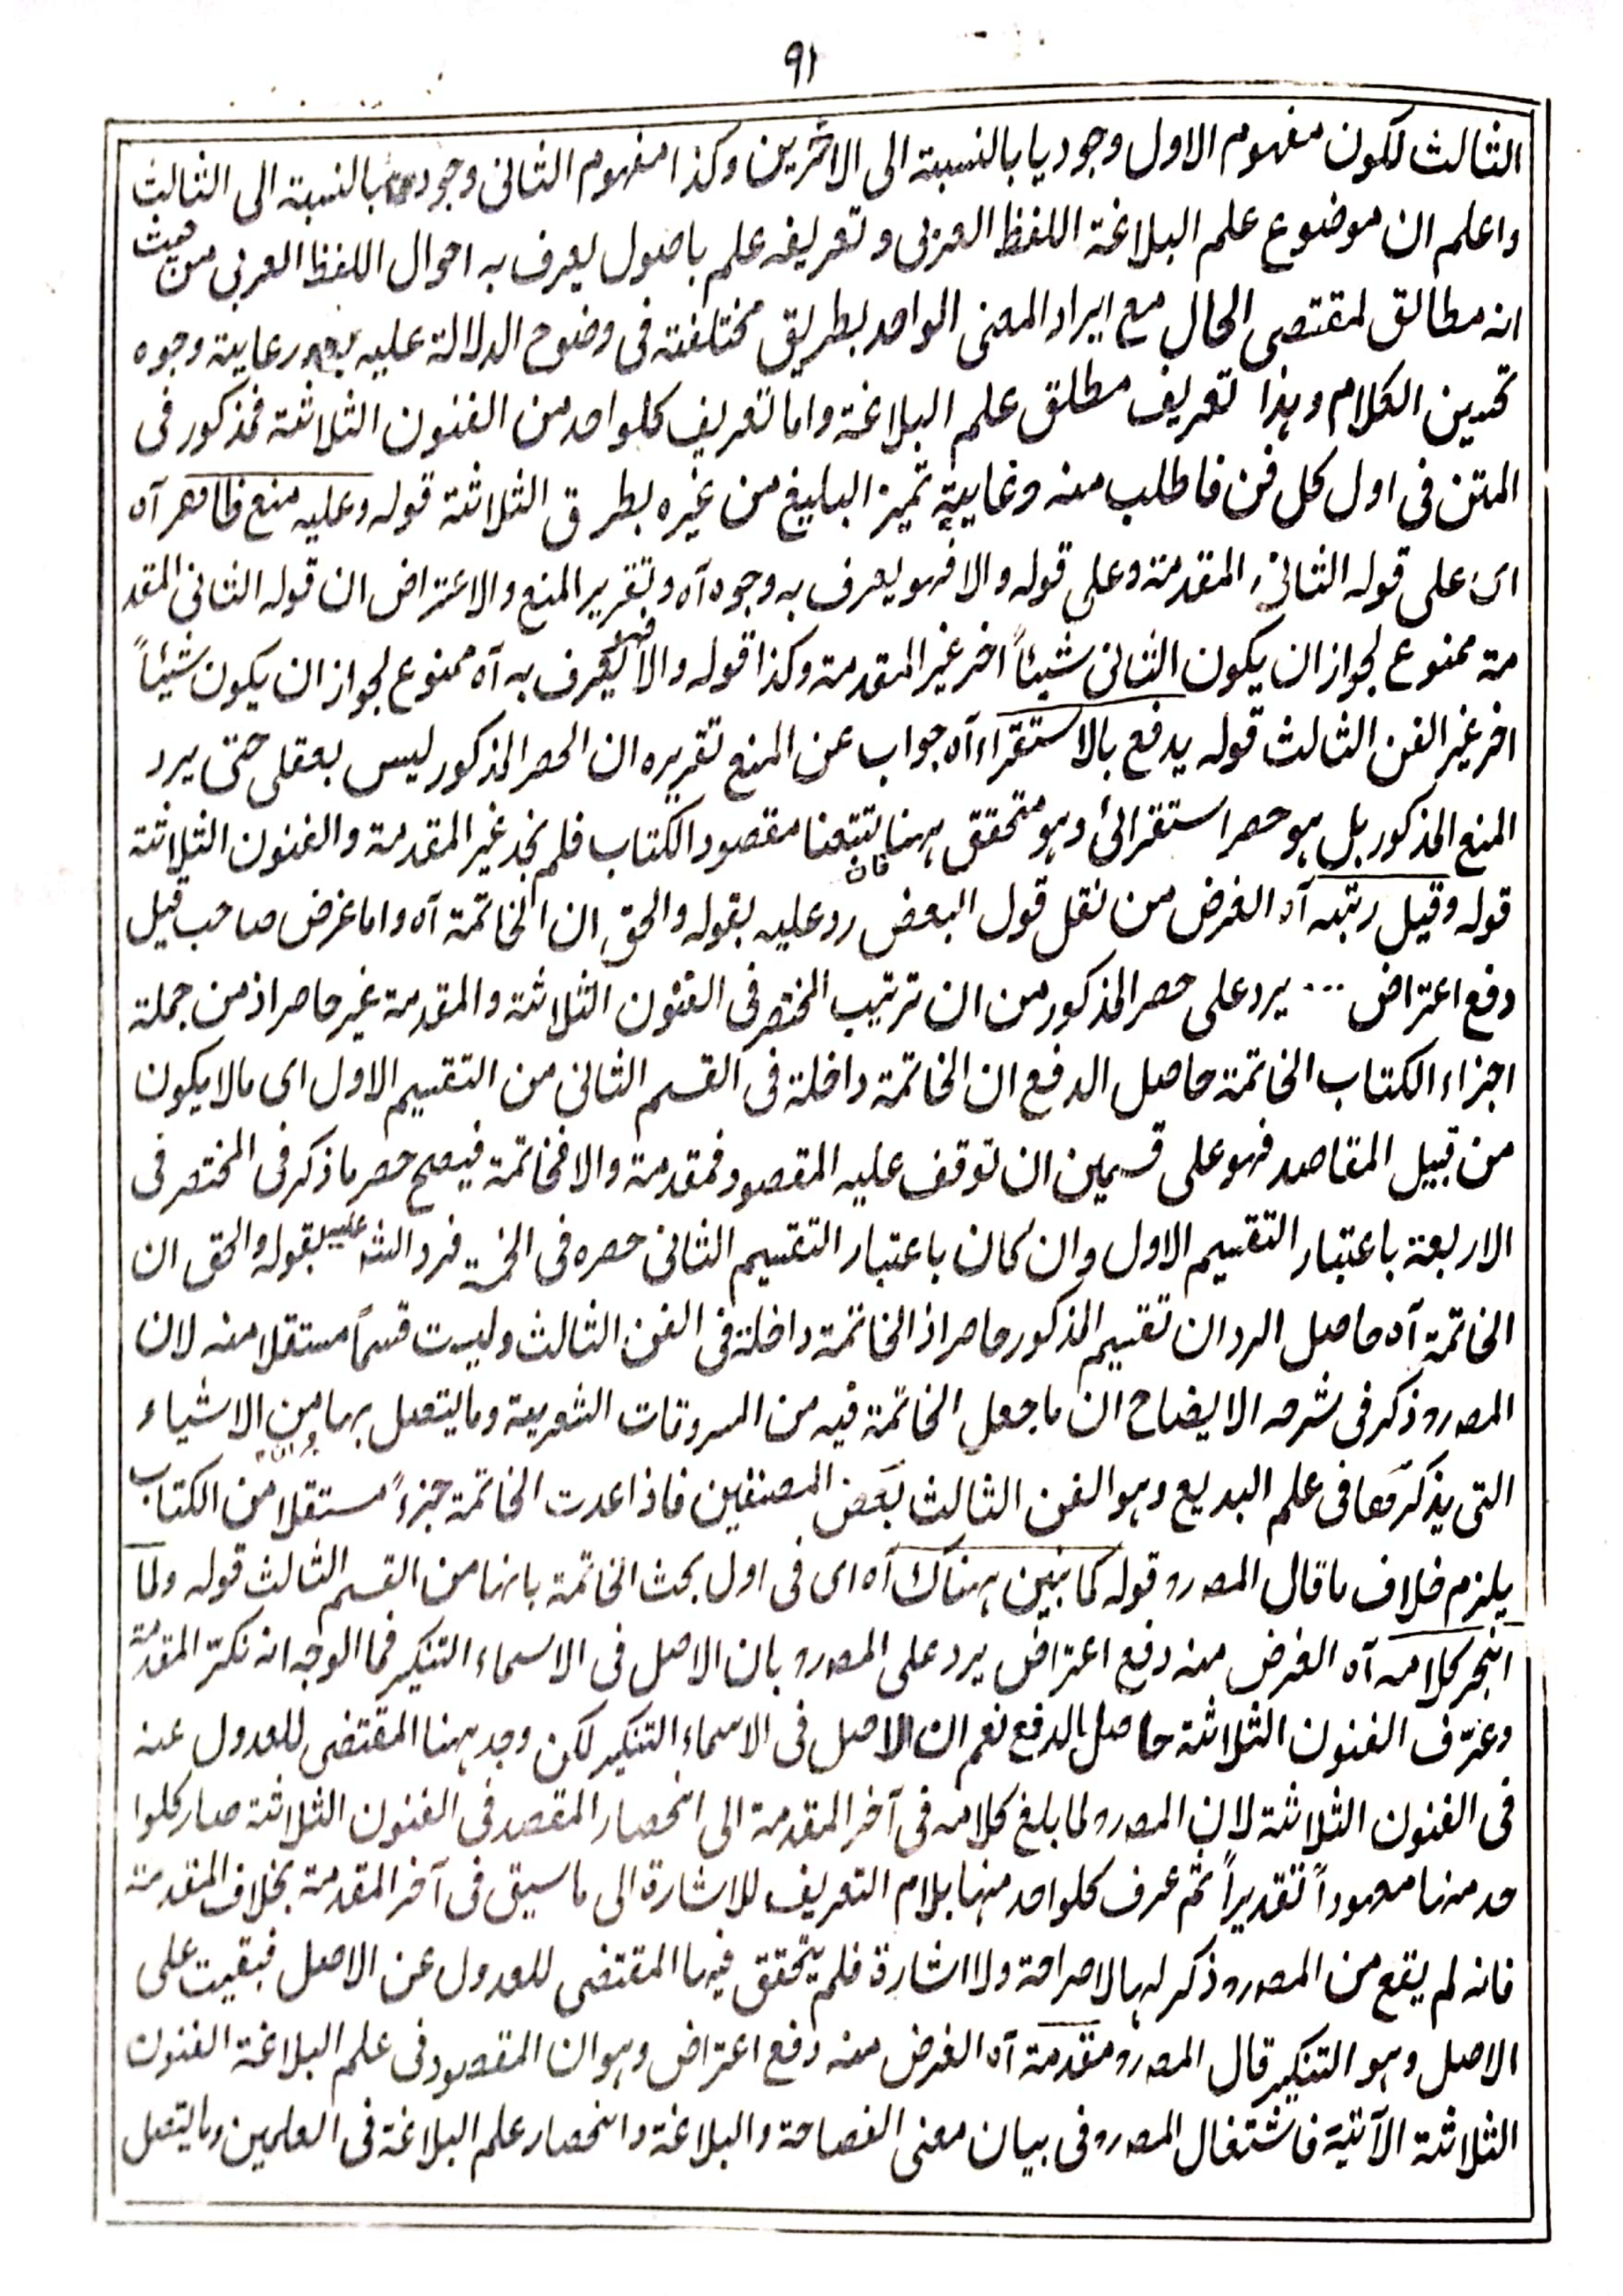 ٩١
الثالث لكون مفهوم الاول وجوديا بالنسبة الى الاخرين وكذا مفهوم الثانى وجودى بالنسبة الى الثالث
واعلم ان موضوع علم البلاغة اللفظ العربى و تعريفه علم باصول يعرف به احوال اللفظ العربى من حيث
انه مطابق لمقتضى الحال مع ايراد المعنى الواحد بطريق مختلفة فى وضوح الدلالة عليه بعد رعاية وجوه
تحسين الكلام وهذا تعريف مطلق علم البلاغة واما تعريف كلواحد من الفنون الثلاثة فمذكور فى
المتن فى اول كل فن فاطلب منه وغايته تميز البليغ من غيره بطرق الثلاثة قوله وعليه منع ظاهر آه
اى على قوله الثانى المقدمة وعلى قوله والا فهو يعرف به وجوه آه وتقرير المنع والاعتراض ان قوله الثانى المقد
مة ممنوع لجواز ان يكون الثانى شيئاً اخر غير المقدمة وكذا قوله والا فهو يعرف به آه ممنوع لجواز ان يكون شيئاً
اخر غير الفن الثالث قوله يدفع بالاستقراء آه جواب عن المنع تقريره ان الحصر المذكور ليس بعقلى حتى يرد
المنع المذكور بل هو حصر استقرائى وهو متحقق ههنا فان تتبعنا مقصود الكتاب فلم نجد غير المقدمة والفنون الثلاثة
قوله وقيل رتبه آه الغرض من نقل قول البعض رد عليه بقوله والحق ان الخاتمة آه واما غرض صاحب قيل
دفع اعتراض ... يرد على حصر المذكور من ان ترتيب المختصر فى الفنون الثلاثة والمقدمة غير حاصر اذ من جملة
اجزاء الكتاب الخاتمة حاصل الدفع ان الخاتمة داخلة فى القسم الثانى من التقسيم الاول اى مالايكون
من قبيل المقاصد فهو على قسمين ان توقف عليه المقصود فمقدمة والا فخاتمة فيصح حصر ما ذكر فى المختصر فى
الاربعة باعتبار التقسيم الاول وان كان باعتبار التقسيم الثانى حصره فى الخمسة فرد الشه عليه بقوله والحق ان
الخاتمة آه حاصل الرد ان تقسيم المذكور حاصر اذ الخاتمة داخلة فى الفن الثالث وليست قسماً مستقلا منه لان
المصره ذكر فى شرحه الايضاح ان ما جعل الخاتمة فيه من السروقات الشعرية وما يتصل بها من الاشياء
التى يذكرها فى علم البديع وهو الفن الثالث بعض المصنفين فاذا عدت الخاتمة جزءً مستقلا من الكتاب
يلزم خلاف ما قال المصره قوله كما نبين هناك آه اى فى اول بحث الخاتمة بانها من القسم الثالث قوله ولما
انجر كلامه آه الغرض منه دفع اعتراض يرد على المصره بان الاصل فى الاسماء التنكير فما الوجه انه نكّر المقدمة
وعرّف الفنون الثلاثة حاصل الدفع نعم ان الاصل فى الاسماء التنكير لكن وجد ههنا المقتضى للعدول عنه
فى الفنون الثلاثة لان المصره لما بلغ كلامه فى آخر المقدمة الى انحصار المقصد فى الفنون الثلاثة صار كلوا
حد منها معهوداً تقديراً ثم عرف كلواحد منها بلام التعريف للاشارة الى ما سبق فى آخر المقدمة بخلاف المقدمة
فانه لم يقع من المصره ذكر لها لا صراحة ولا اشارة فلم يتحقق فيها المقتضى للعدول عن الاصل فبقيت على
الاصل وهو التنكير قال المصره مقدمة آه الغرض منه دفع اعتراض وهو ان المقصود فى علم البلاغة الفنون
الثلاثة الآتية فاشتغال المصره فى بيان معنى الفصاحة والبلاغة وانحصار علم البلاغة فى العلمين وما يتصل